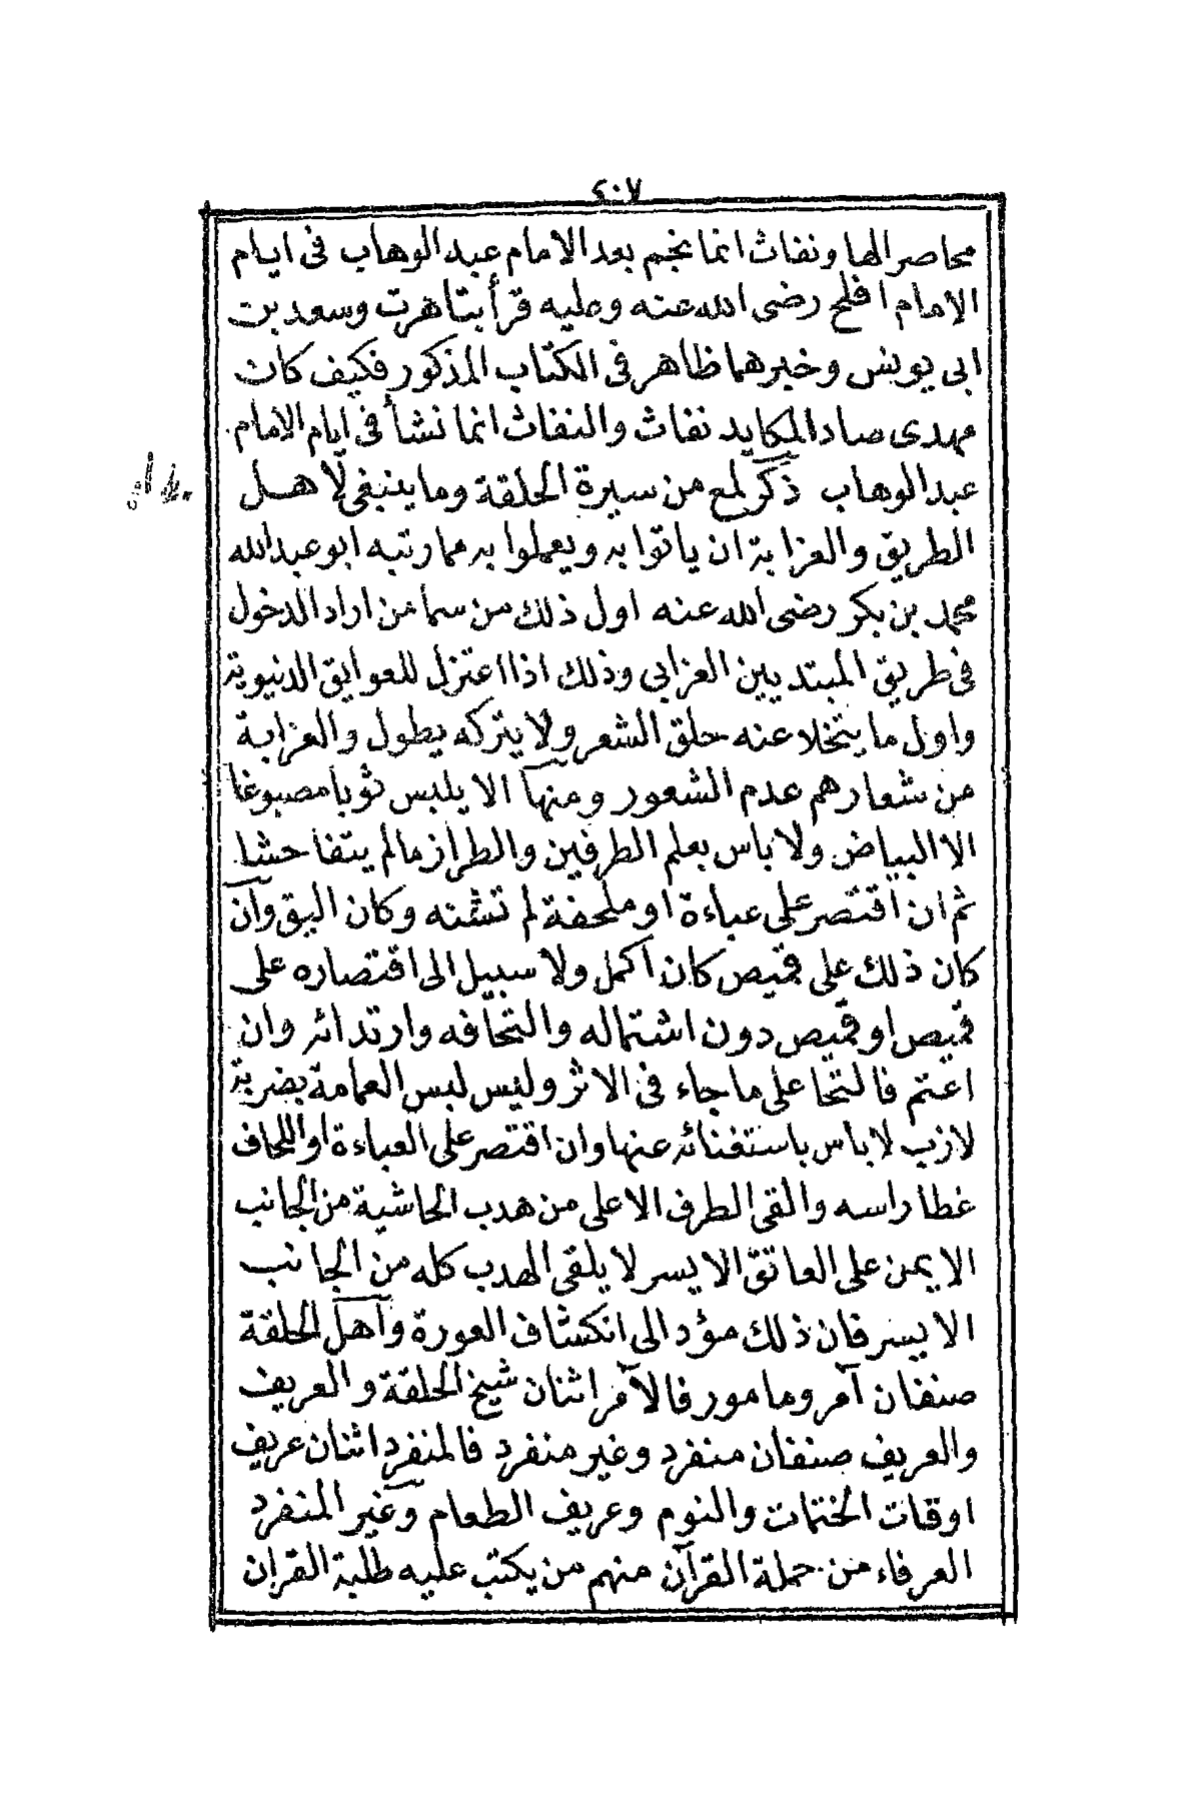 ٤٠٧
محاصرالها ونفاث انما نجم بعد الامام عبد الوهاب فى ايام
الامام افلح رضى الله عنه وعليه قرأ بتاهرت وسعد بن
ابى يونس وخبرهما ظاهر فى الكتاب المذكور فكيف كان
مهدى صاد المكايد نفاث والنفاث انما نشأ فى ايام الامام
عبد الوهاب ذكر لمع من سيرة الحلقة وما ينبغى لاهل
الطريق والعزابة ان ياتوا به ويعملوا به مما رتبه ابو عبد الله
محمد بن بكر رضى الله عنه اول ذلك من سما من اراد الدخول
فى طريق المبتديين العزابى وذلك اذا اعتزل للعوايق الدنيوية
واول ما يتخلا عنه حلق الشعر ولا يتركه يطول والعزابة
من شعارهم عدم الشعور ومنها الا يلبس ثوبا مصبوغا
الا البياض ولا باس بعلم الطرفين والطراز مالم يتفاحشا
ثم ان اقتصر على عباءة او ملحفة لم تشنه وكان اليق وان
كان ذلك على قميص كان اكمل ولا سبيل الى اقتصاره على
قميص او قميص دون اشتماله والتحافه وارتدائه وان
اعتم فالتحا على ما جاء فى الاثر وليس لبس العمامة بضربة
لازب لا باس باستغنائه عنها وان اقتصر على العباءة او اللحاف
غطا راسه والقى الطرف الاعلى من هدب الحاشية من الجانب
الايمن على العاتق الايسر لا يلقى الهدب كله من الجانب
الايسر فان ذلك مؤد الى انكشاف العورة واهل الحلقة
صنفان آمر ومامور فالآمر اثنان شيخ الحلقة والعريف
والعريف صنفان منفرد وغير منفرد فالمنفرد اثنان عريف
اوقات الختمات والنوم وعريف الطعام وغير المنفرد
العرفاء من حملة القرآن منهم من يكتب عليه طلبة القران